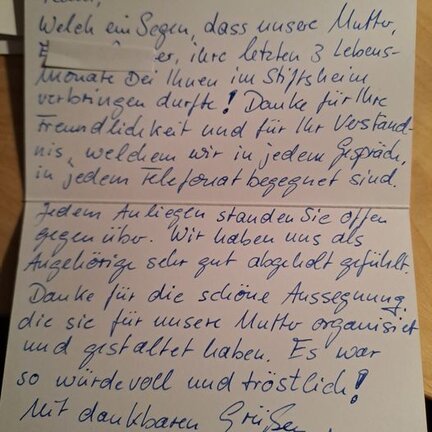 Welch ein Segen, dass unsere Mutter,
er, ihre letzten 3 Lebens-
monate bei Ihnen im Stiftsheim
verbringen durfte! Danke für Ihre
Freundlichkeit und für Ihr Verständ-
nis, welchem wir in jedem Gespräch,
in jedem Telefonat begegnet sind.
Jedem Anliegen standen Sie offen
gegenüber. Wir haben uns als
Angehörige sehr gut abgeholt gefühlt.
Danke für die schöne Aussegnung,
die sie für unsere Mutter organisiert
und gestaltet haben. Es war
so würdevoll und tröstlich!
Mit dankbaren Grüßen,